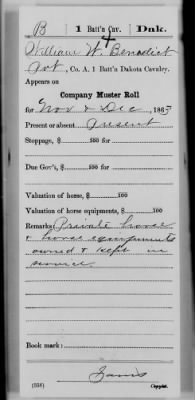 B 1 Batt'n Cav. Dak.
William W. Benedict
Pvt, Co. A, 1 Batt'n Dakota Cavalry.
Appears on
Company Muster Roll
for Nov & Dec, 1863
Present or absent Present
Stoppage, $ 100 for
Due Gov't, $ 100 for
Valuation of horse, $ 100
Valuation of horse equipments, $ 100
Remarks: Private horse
& horse equipments
owned & kept in
service
Book mark:
(358) Copyist.